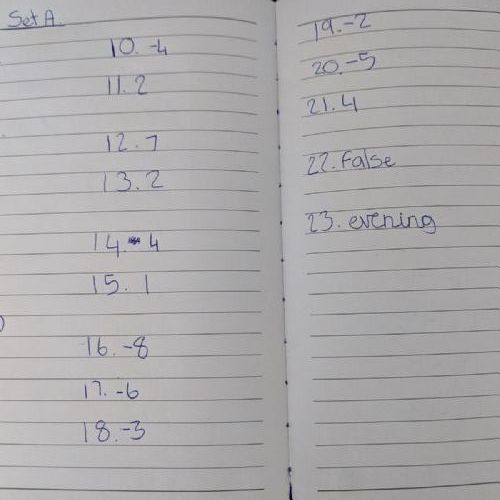 Set A.
10. -4
11. 2
12. 7
13. 2
14. -4
15. 1
16. -8
17. -6
18. -3
19. -2
20. -5
21. 4
22. False
23. evening